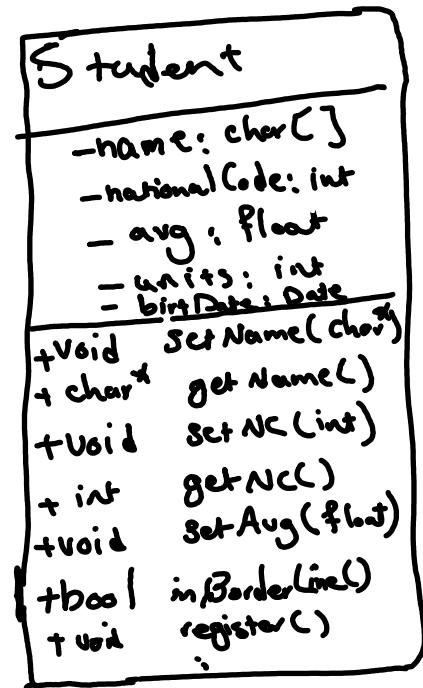 Student
-name: char[]
-nationalCode: int
- avg: float
- units: int
- birtDate: Date
+void setName(char*)
+ char* getName()
+void setNC(int)
+ int getNC()
+void setAvg(float)
+bool inBorderLine()
+ void register()
: